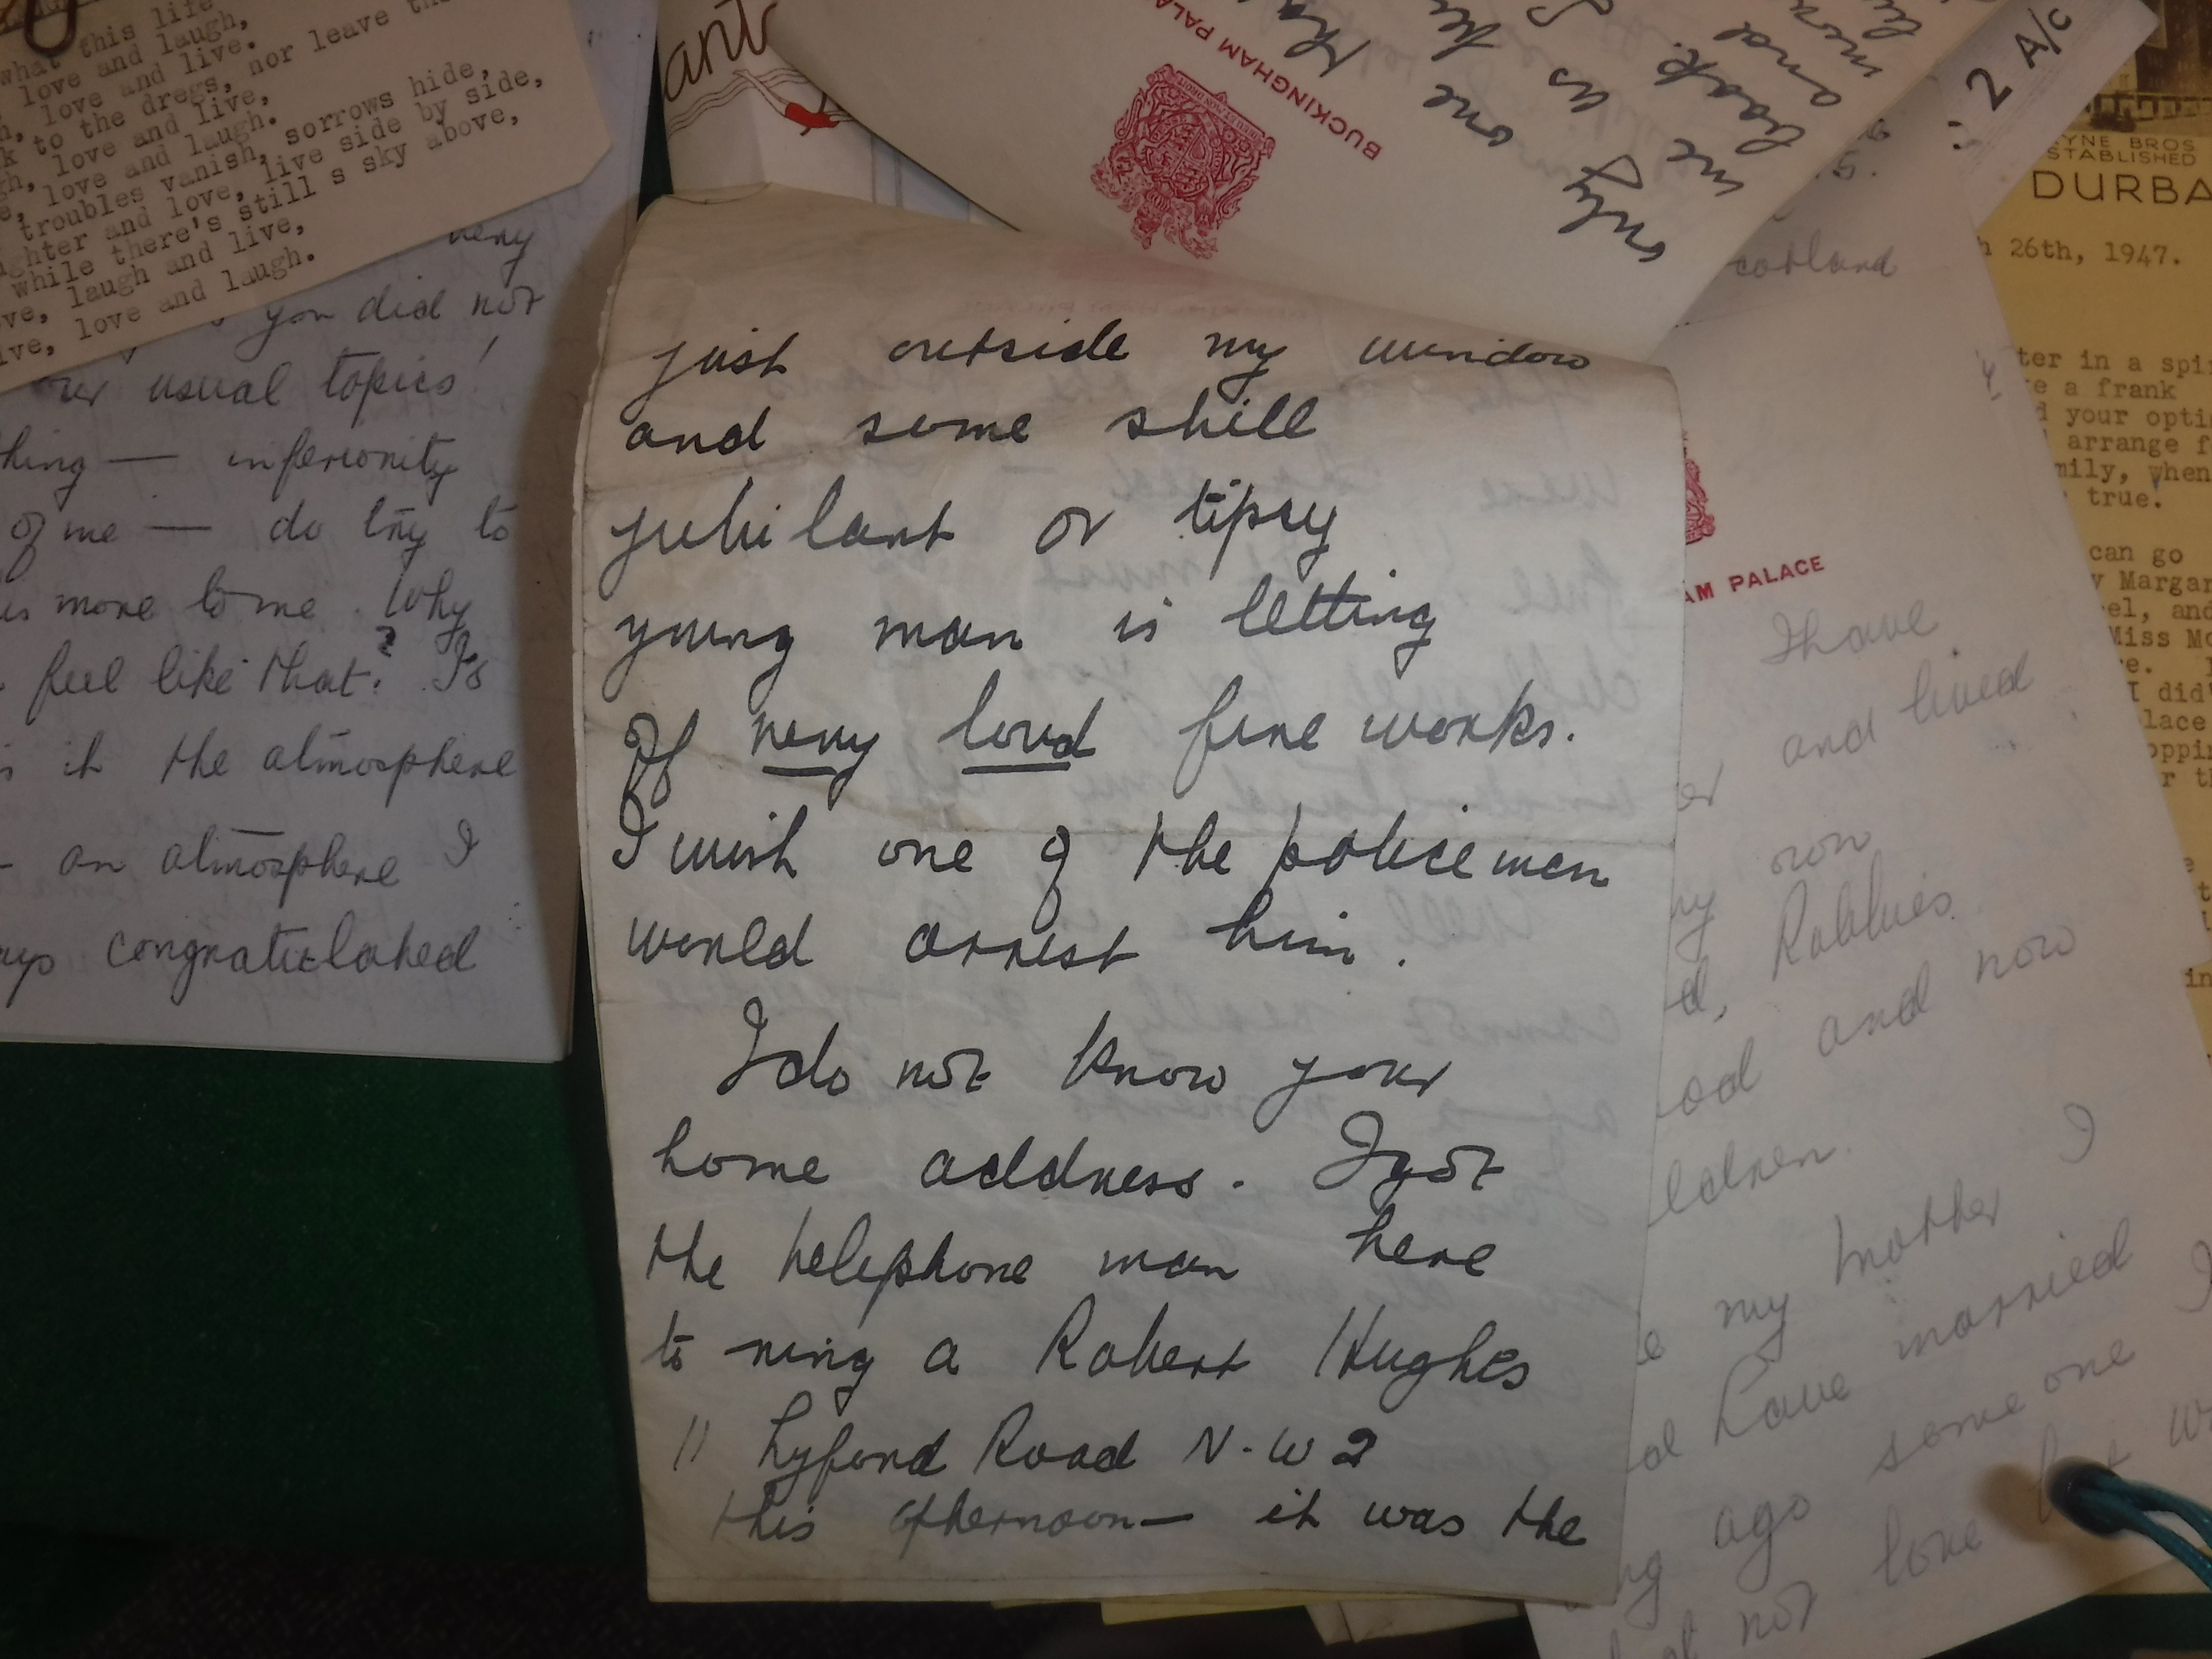 what this life
love and laugh,
love and live.
to the dregs, nor leave
love and live,
love and laugh.
troubles vanish, sorrows hide,
and love, live side by side,
while there's still s sky above,
laugh and live,
love and laugh.
very
you did not
our usual topics!
inferiority
of me — do try to
more to me. Why
feel like that? Is
it the atmosphere
- an atmosphere I
congratulated
BUCKINGHAM PALA
one
us
me
book.
and
only
just outside my window
and some shill
jubilant or tipsy
young man is letting
off very loud fire works.
I wish one of the policemen
would arrest him.
I do not know your
home address. I got
the telephone man here
to ring a Robert Hughes
11 Lyford Road N.W 2
this afternoon — it was the
2 A/c
cotland
AM PALACE
I have
and lived
own
Robbies
and now
my mother I
have married
ago some one I
not love
not
YNE BROS
STABLISHED
DURBA
26th, 1947.
ter in a spi
e a frank
d your opti
arrange f
mily, when
true.
can go
Margar
el, and
Miss Mc
I did'
lace
oppi